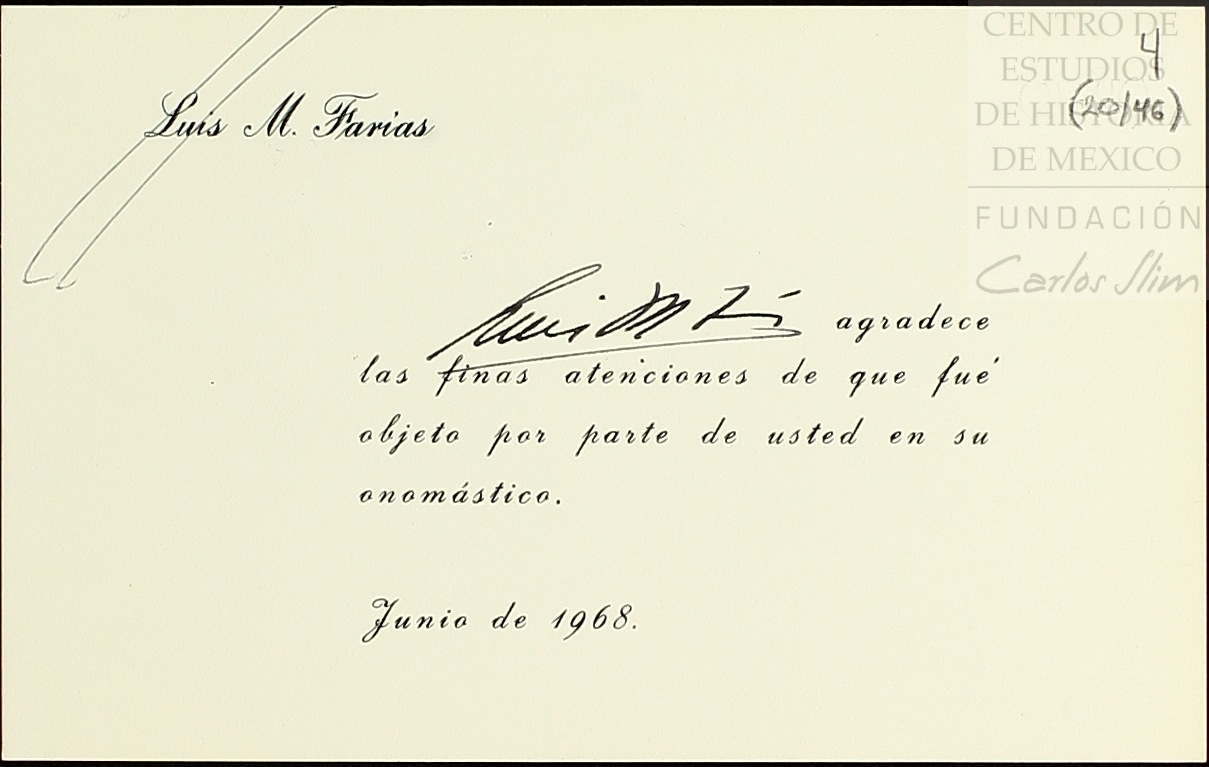 CENTRO DE
ESTUDIOS
DE HISTORIA
DE MEXICO
FUNDACIÓN
Carlos Slim
4
(20/46)
Luis M. Farias
Luis M F agradece
las finas atenciones de que fué
objeto por parte de usted en su
onomástico.
Junio de 1968.